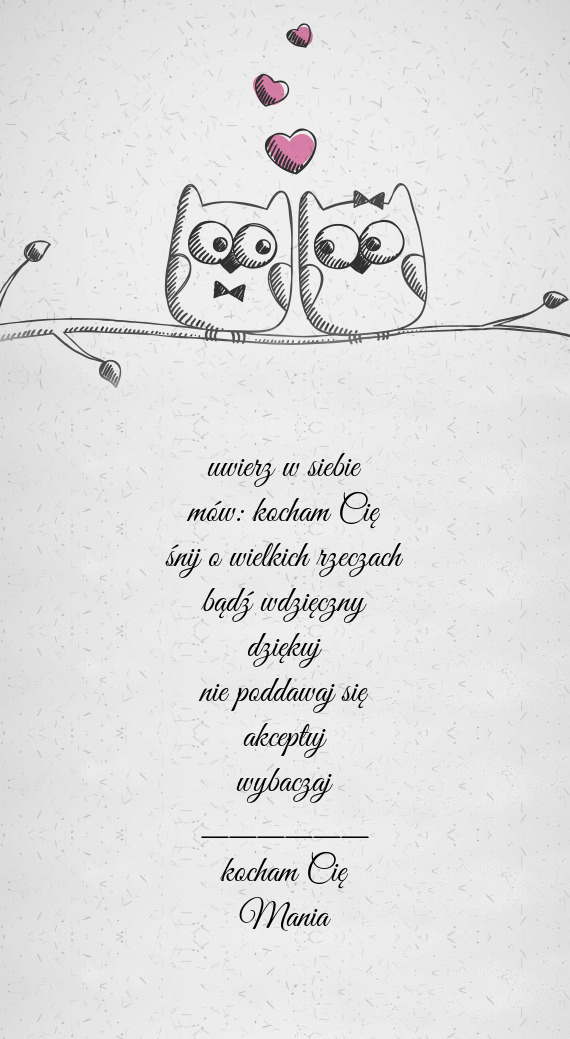 uwierz w siebie
mów: kocham Cię
śnij o wielkich rzeczach
bądź wdzięczny
dziękuj
nie poddawaj się
akceptuj
wybaczaj
__________
kocham Cię
Mania